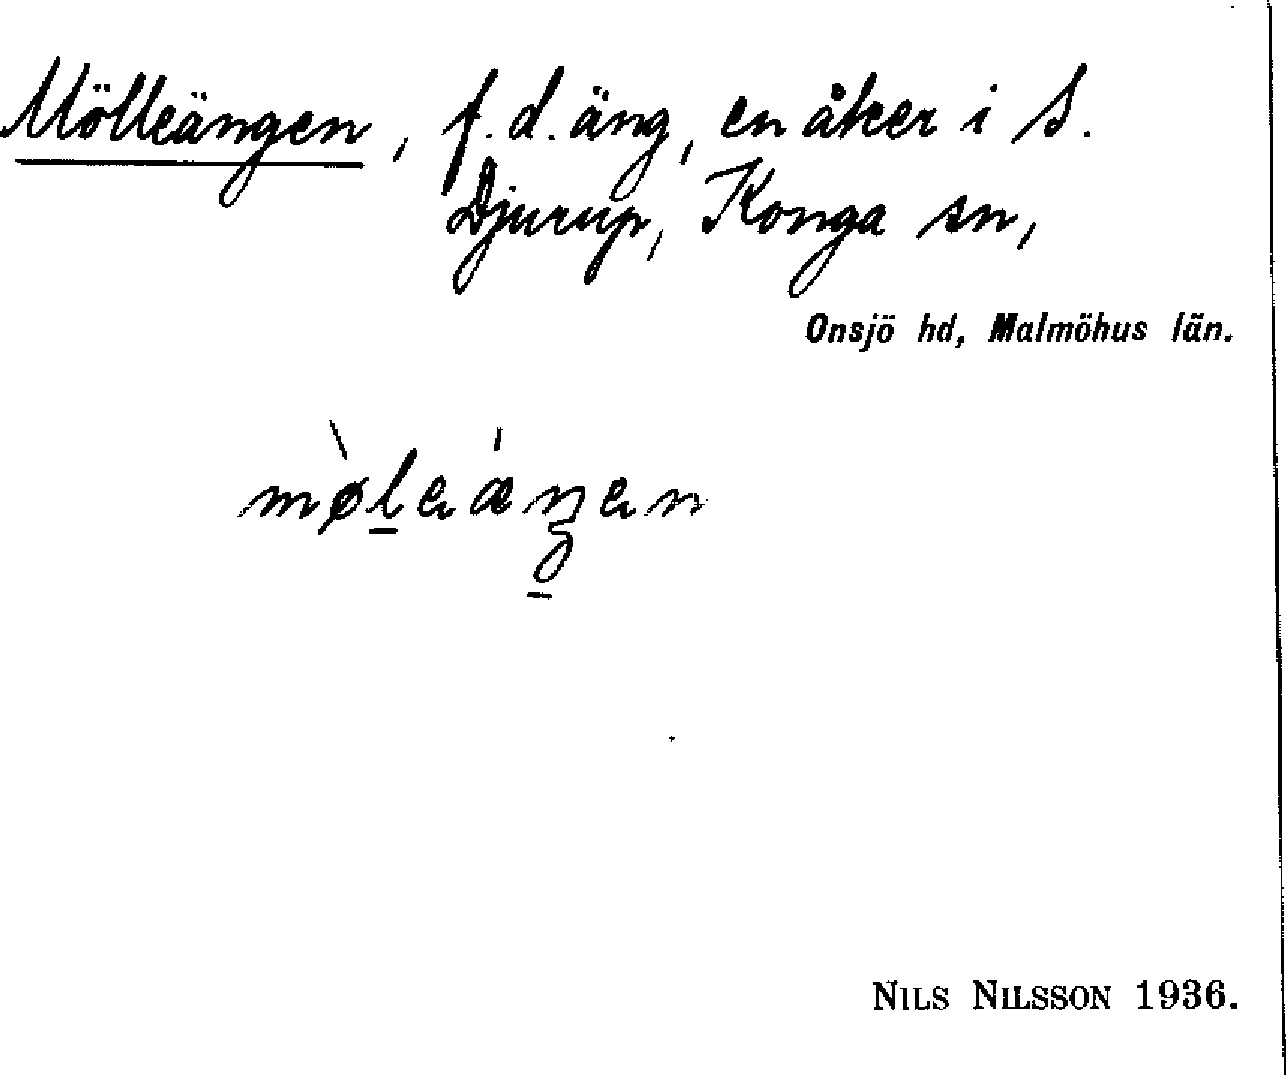 Mölleängen, f. d. äng, en åker i S.
Djurup, Konga sn,
Onsjö hd, Malmöhus län.
mø̀leǽŋen
NILS NILSSON 1936.